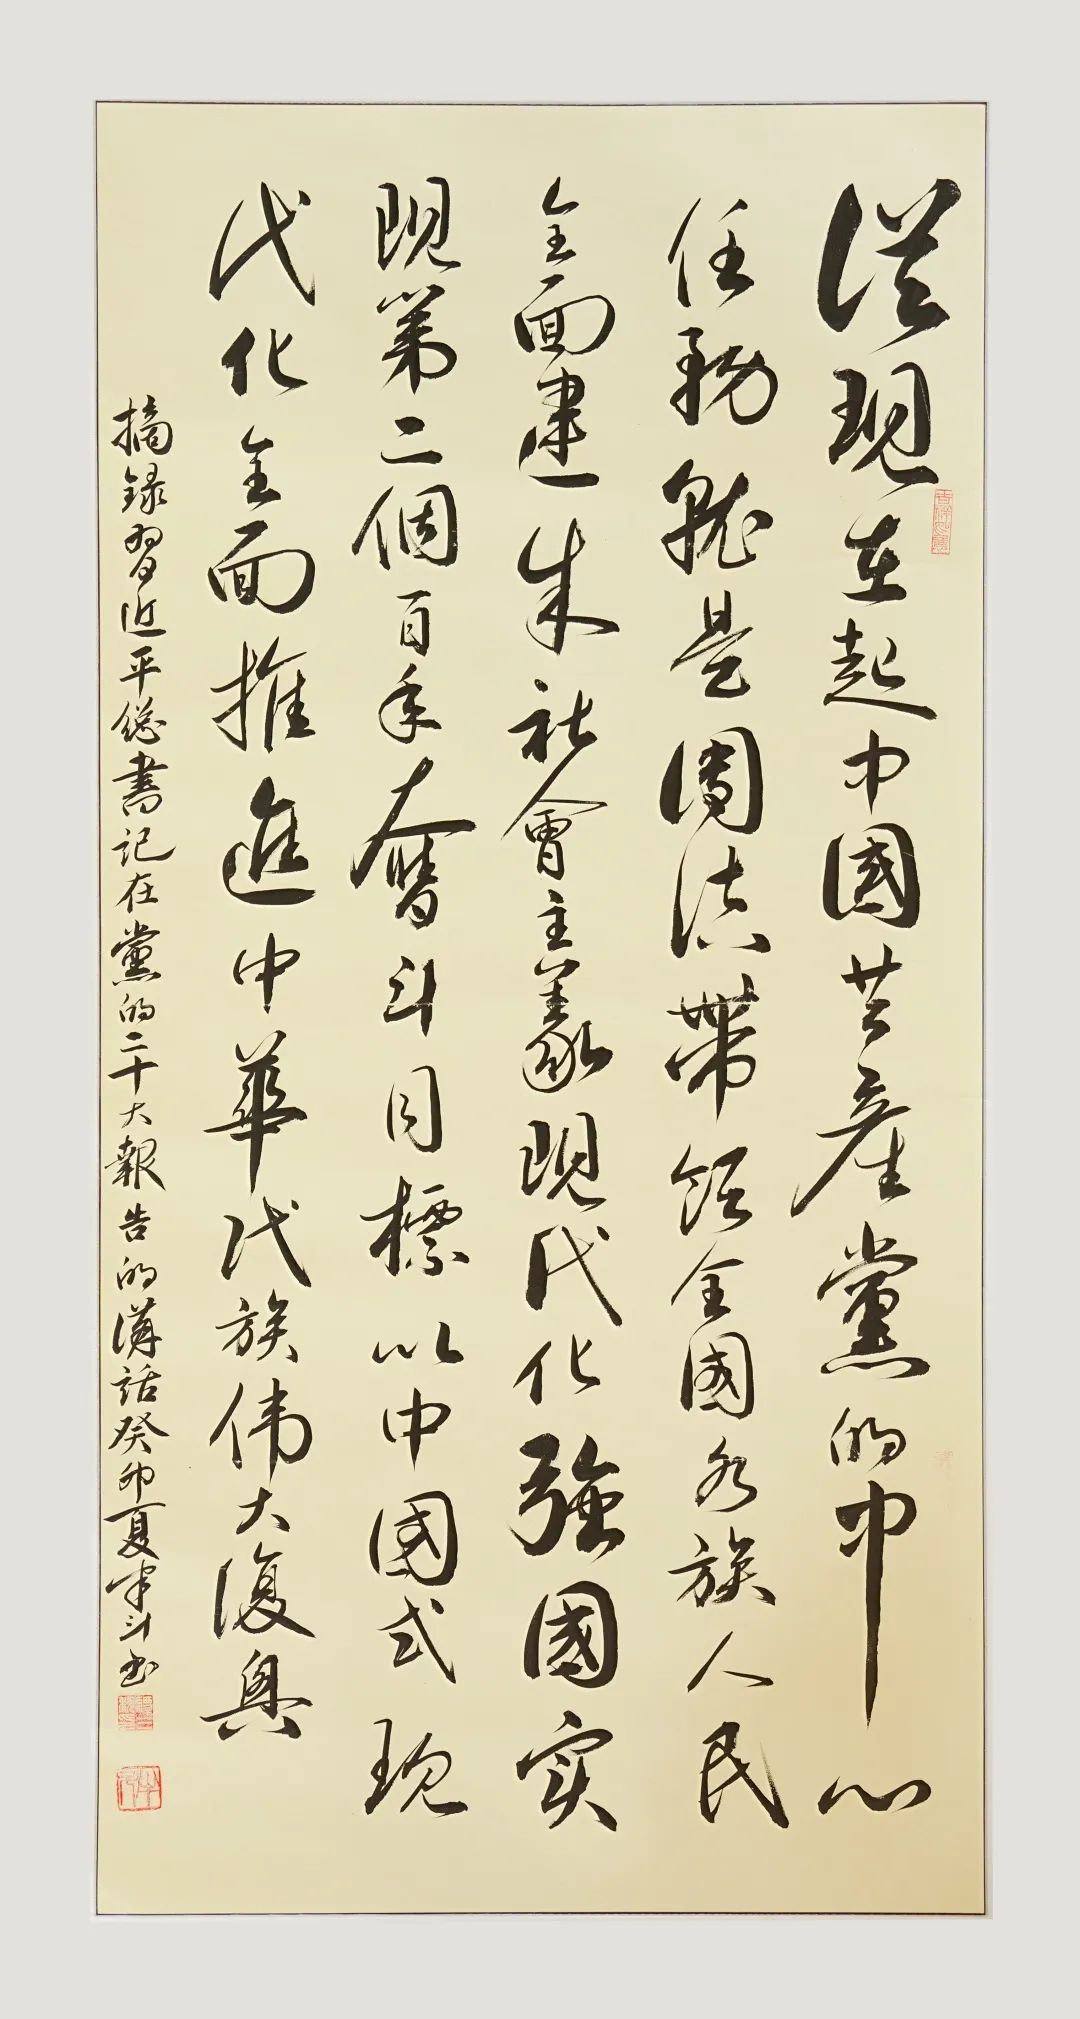 從現在起中國共産黨的中心
任務就是團結帶領全國各族人民
全面建成社會主義現代化強國实
現第二個百年奮斗目標以中國式現
代化全面推進中華代族伟大復興
摘録習近平總書記在黨的二十大報告的講話癸卯夏斗书
吉祥如意